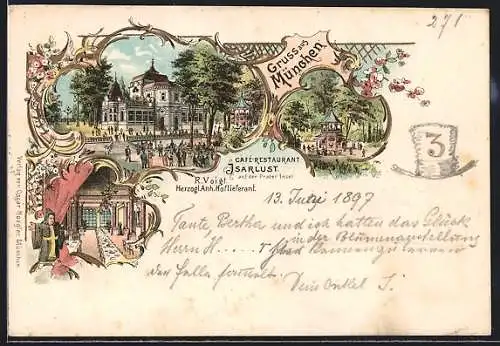 271
Gruss aus
München
3
CAFÉ-RESTAURANT
ISARLUST
auf der Prater-Insel
R. Voigt
Herzogl. Anh. Hoflieferant.
13. 1897
Tante, Bertha und ich hatten das Glück
in der Blumenausstellung
Herrn H
der
Dein Onkel J.
Verlag von Ottmar
München